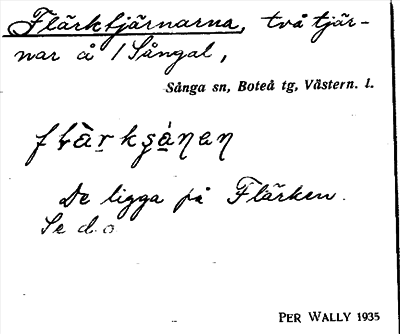 Flärktjärnarna, två tjär-
nar å / Sångal,
Sånga sn, Boteå tg, Västern. l.
De ligga på Flärken.
Se d.o
PER WALLY 1935